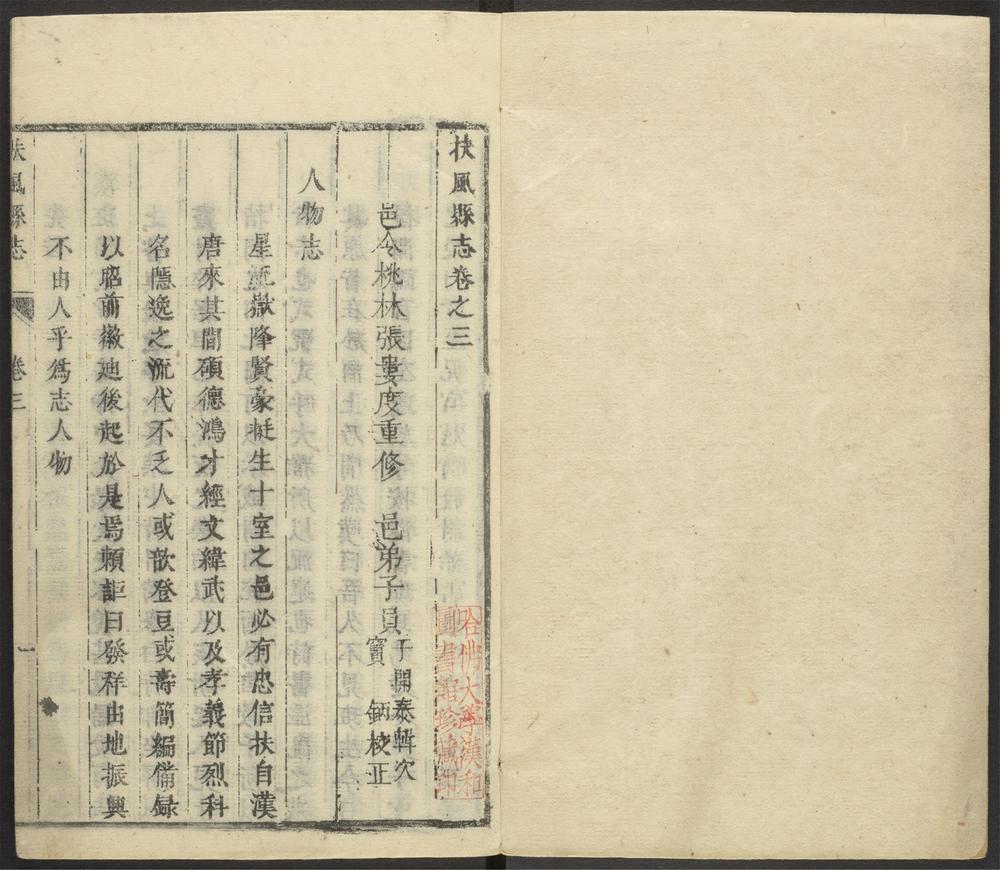 扶風縣志卷之三
邑令桃林張婁度重修　邑弟子員
于開泰輯次
竇　鈵校正
人物志
星延嶽降賢豪挺生十室之邑必有忠信扶自漢
唐來其間碩德鴻才經文緯武以及孝義節烈科
名隱逸之流代不乏人或歆登豆或壽簡編備録
以昭前徽廸後起於是焉頼詎曰發祥由地振興
不由人乎爲志人物
扶風縣志　卷三　一
哈佛大學漢和
圖書館珍藏印